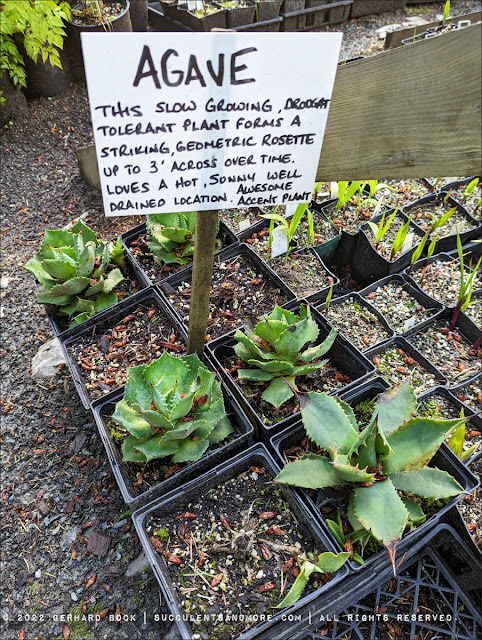 AGAVE
THIS SLOW GROWING, DROOGHT
TOLERANT PLANT FORMS A
STRIKING, GEOMETRIC ROSETTE
UP TO 3' ACROSS OVER TIME.
LOVES A HOT, SUNNY WELL
DRAINED LOCATION. AWESOME
ACCENT PLANT
© 2022 GERHARD BOCK | SUCCULENTSANDMORE.COM | ALL RIGHTS RESERVED.